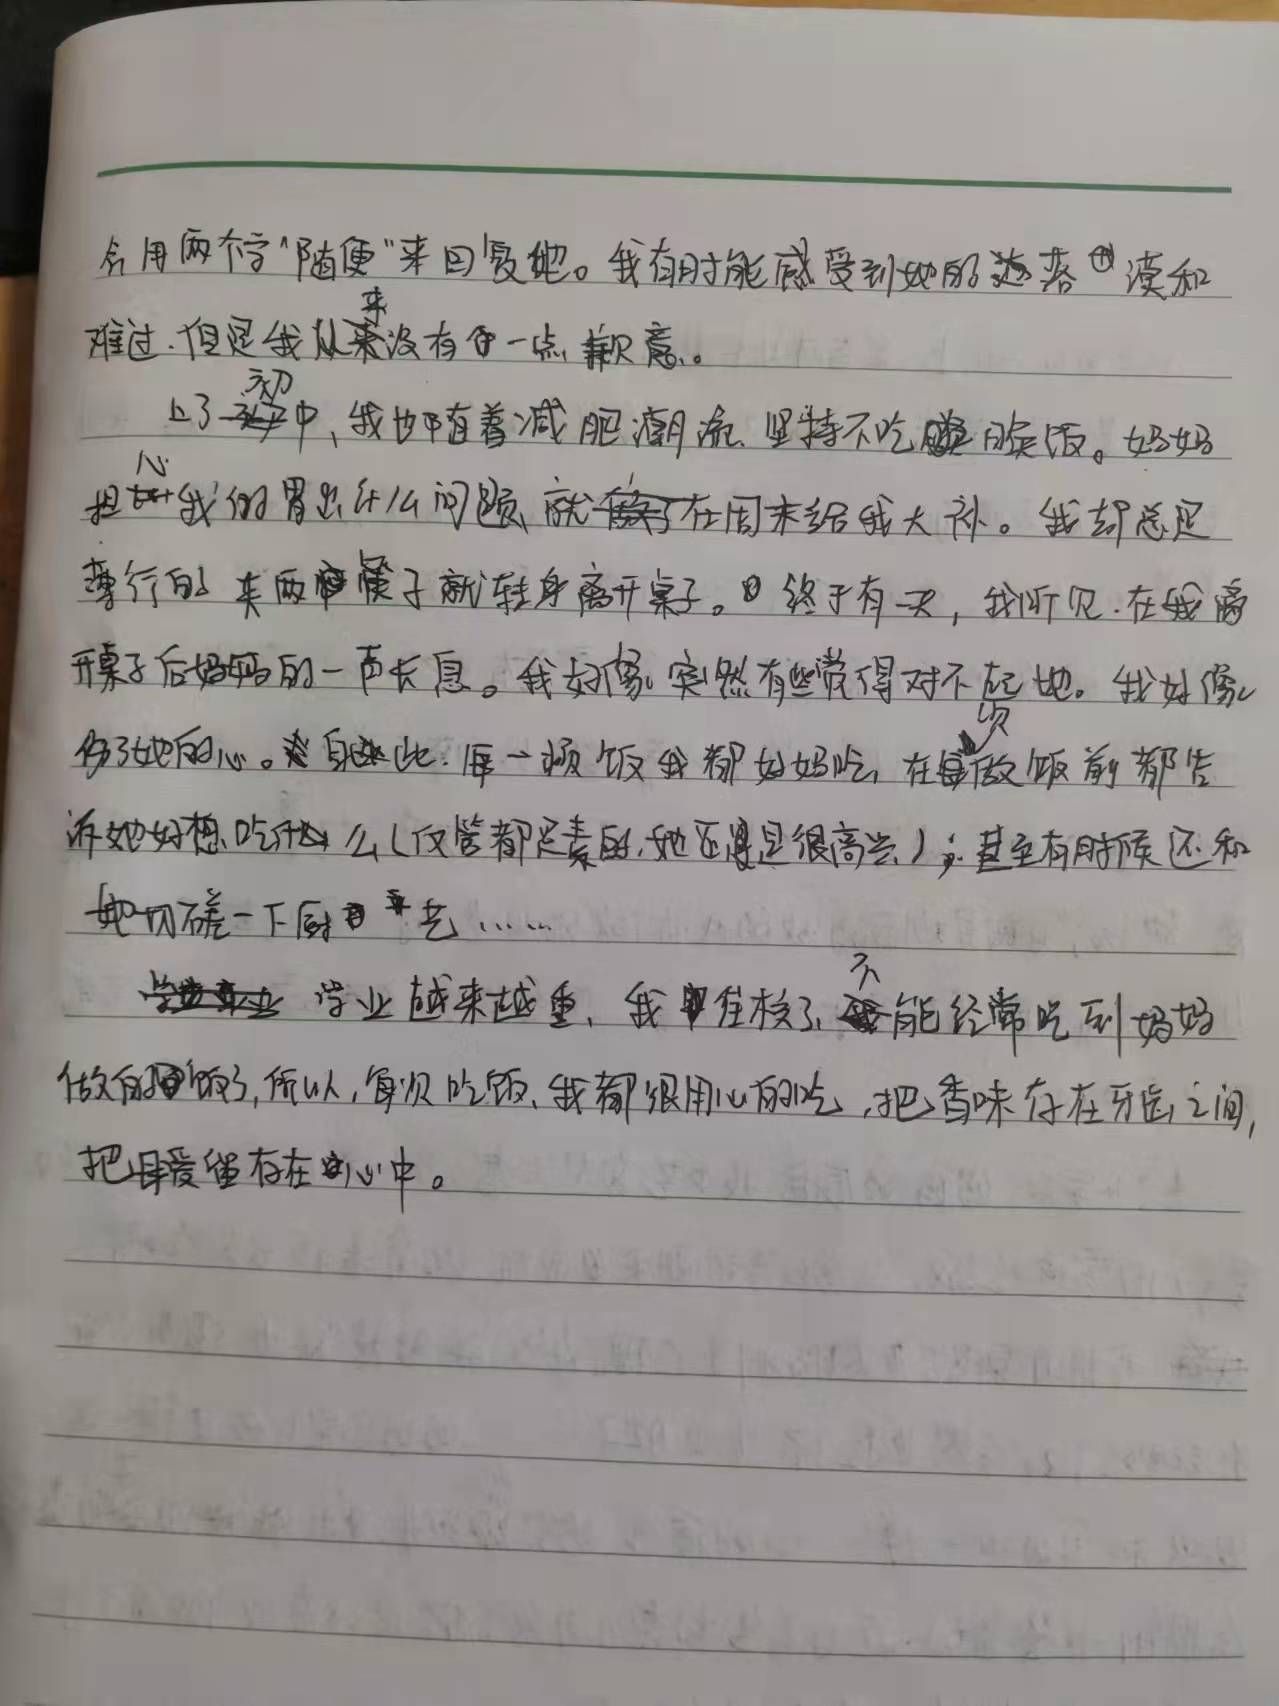 会用两个字“随便”来回复她。我有时能感受到她的落漠和
难过.但是我从来没有一点歉意。
上了初中,我也随着减肥潮流,坚持不吃晚饭。妈妈
担心我的胃出什么问题,就在周末给我大补。我却总是
敷衍的夹两筷子就转身离开桌子。终于有一天,我听见.在我离
开桌子后妈妈的一声长息。我好像突然有些觉得对不起她。我好像
伤了她的心。自此.每一顿饭我都好好吃,在每次做饭前都告
诉她好想吃什么(仅管都是素的,她还是很高兴);甚至有时候还和
她切磋一下厨艺……
学业越来越重,我住校了,不能经常吃到妈妈
做的饭了,所以,每次吃饭,我都很用心的吃,把香味存在牙齿之间,
把母爱留存在心中。